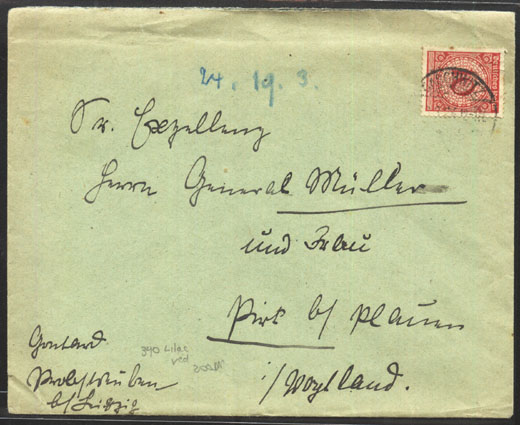 24. 19. 3.
Sr. Exzellenz
Herrn General Müller
und Frau
Pirk b/ Plauen
i/ Vogtland.
Gontard
Probstdeuben
b/ Leipzig
340 lilac
red